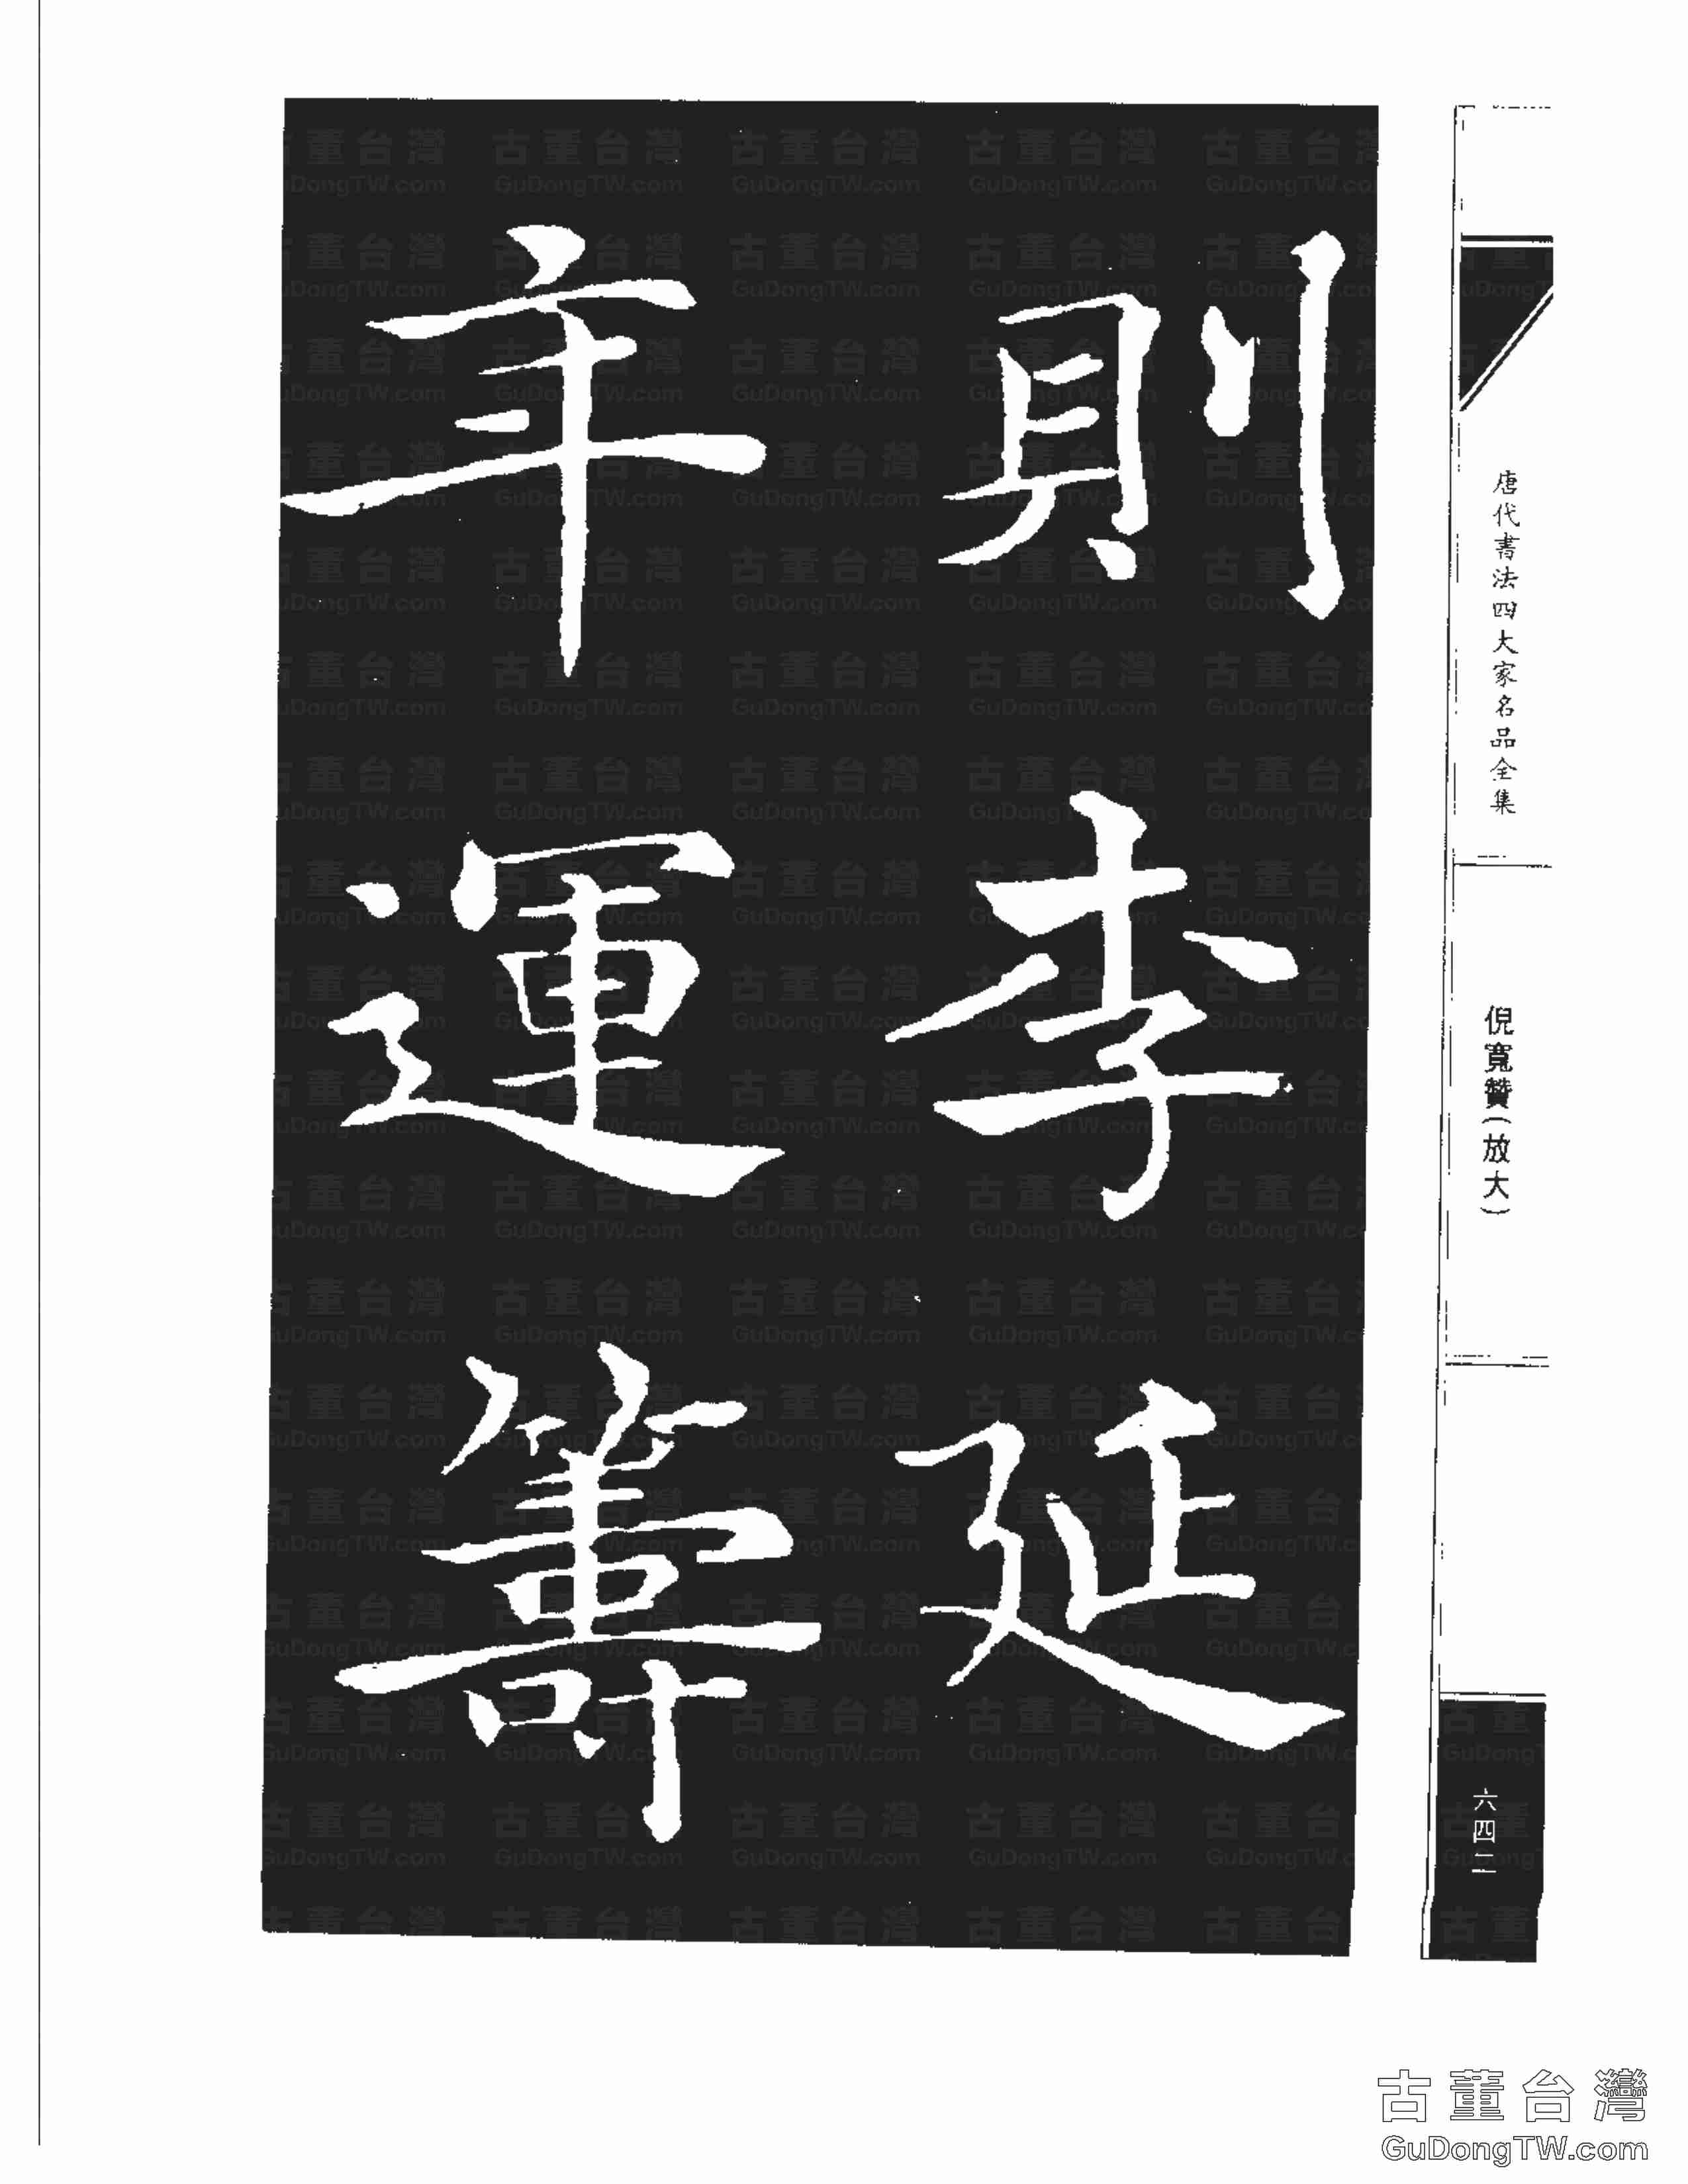 則李延
年運籌
唐代書法四大家名品全集
倪寬贊(放大)
六四二
古董台灣
GuDongTW.com